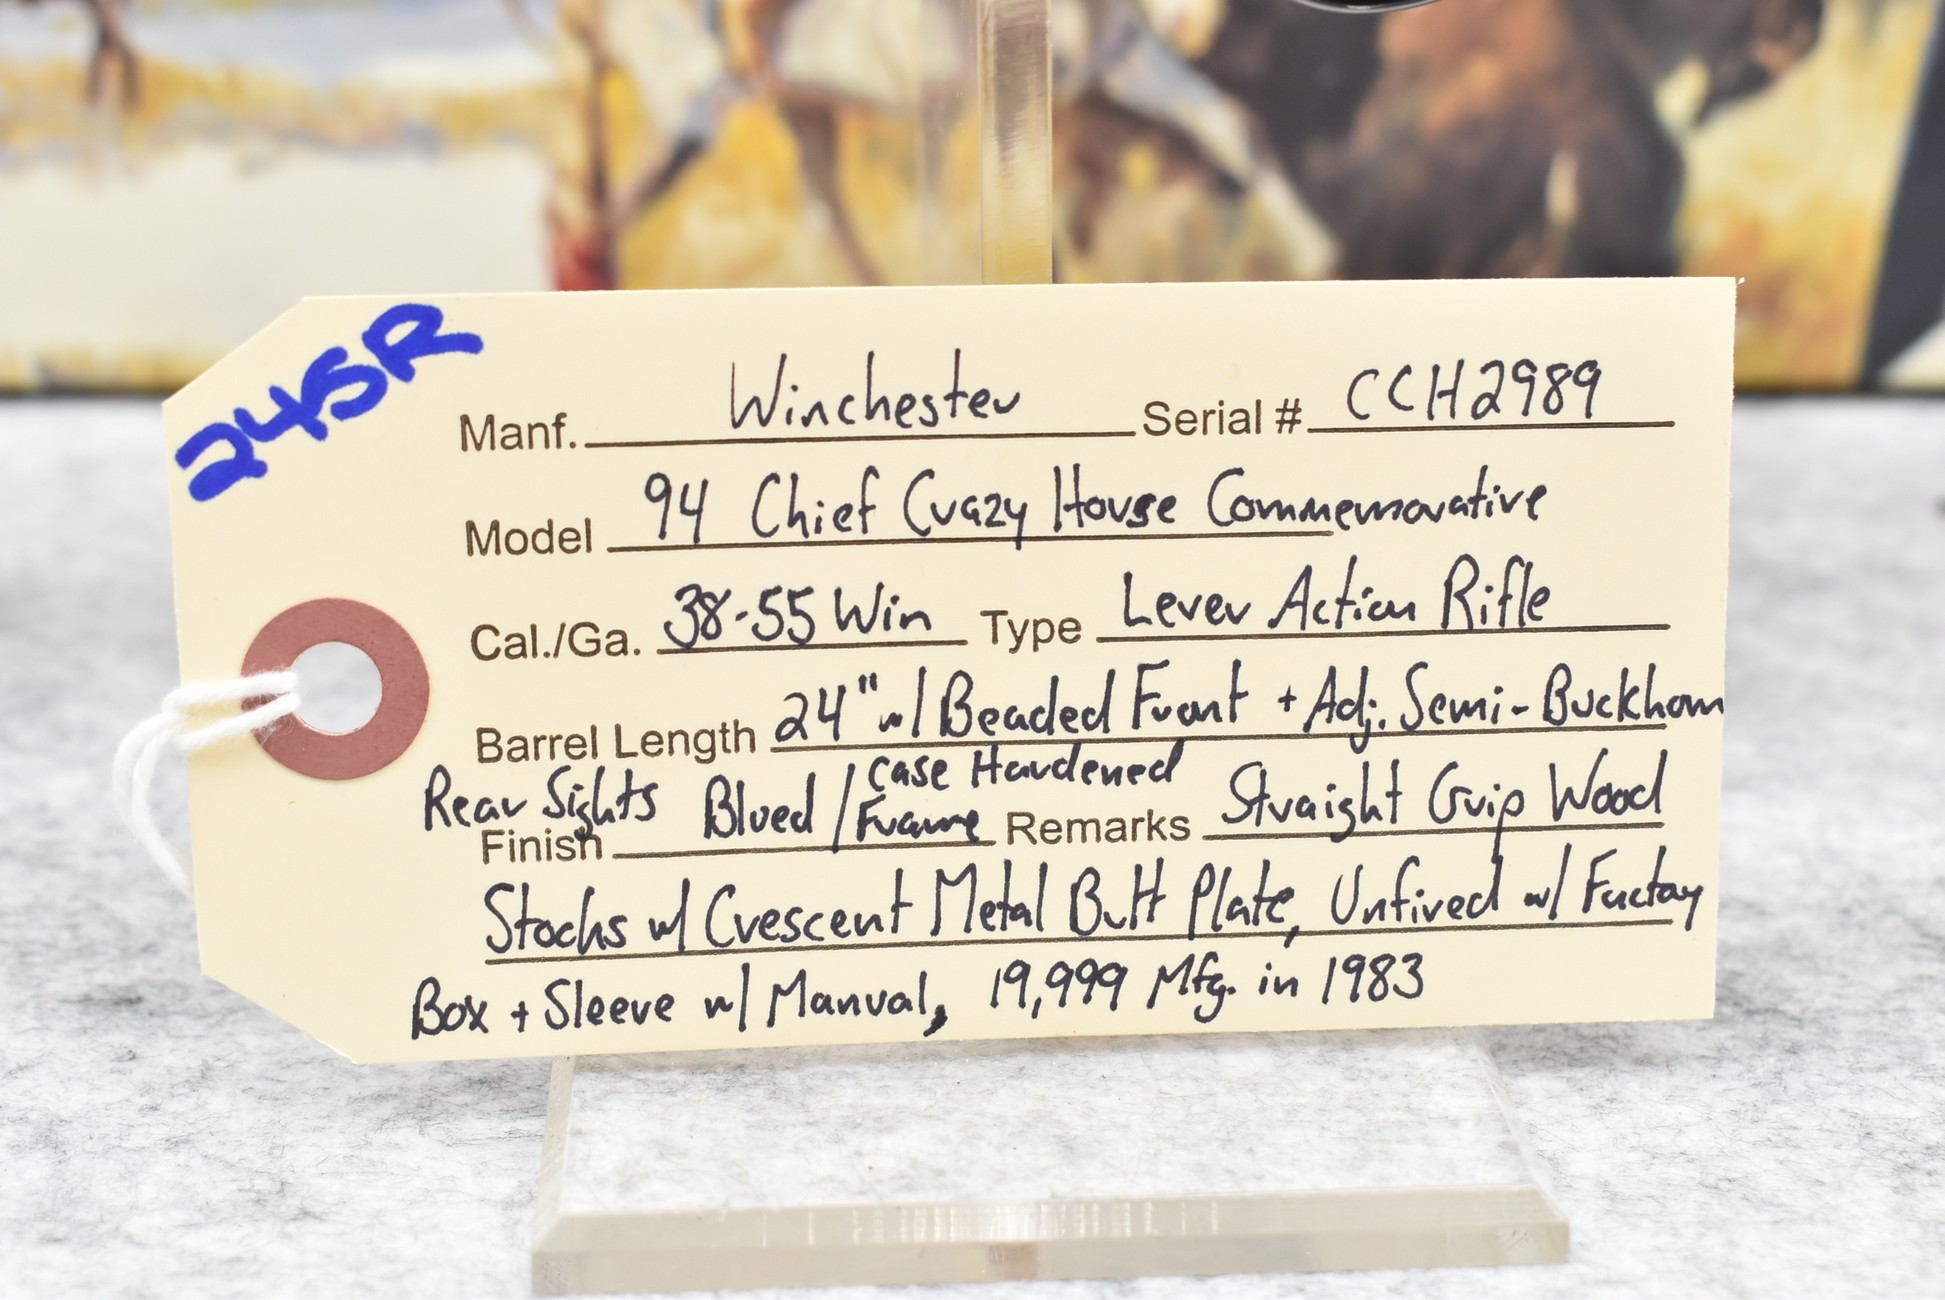 245R
Manf. Winchester Serial # CCH2989
Model 94 Chief Crazy Horse Commemorative
Cal./Ga. 38-55 Win Type Lever Action Rifle
Barrel Length 24" w/ Beaded Front + Adj. Semi-Buckhorn
Rear Sights
Finish Blued / Case Hardened Frame Remarks Straight Grip Wood
Stocks w/ Crescent Metal Butt Plate, Unfired w/ Factory
Box + Sleeve w/ Manual, 19,999 Mfg. in 1983